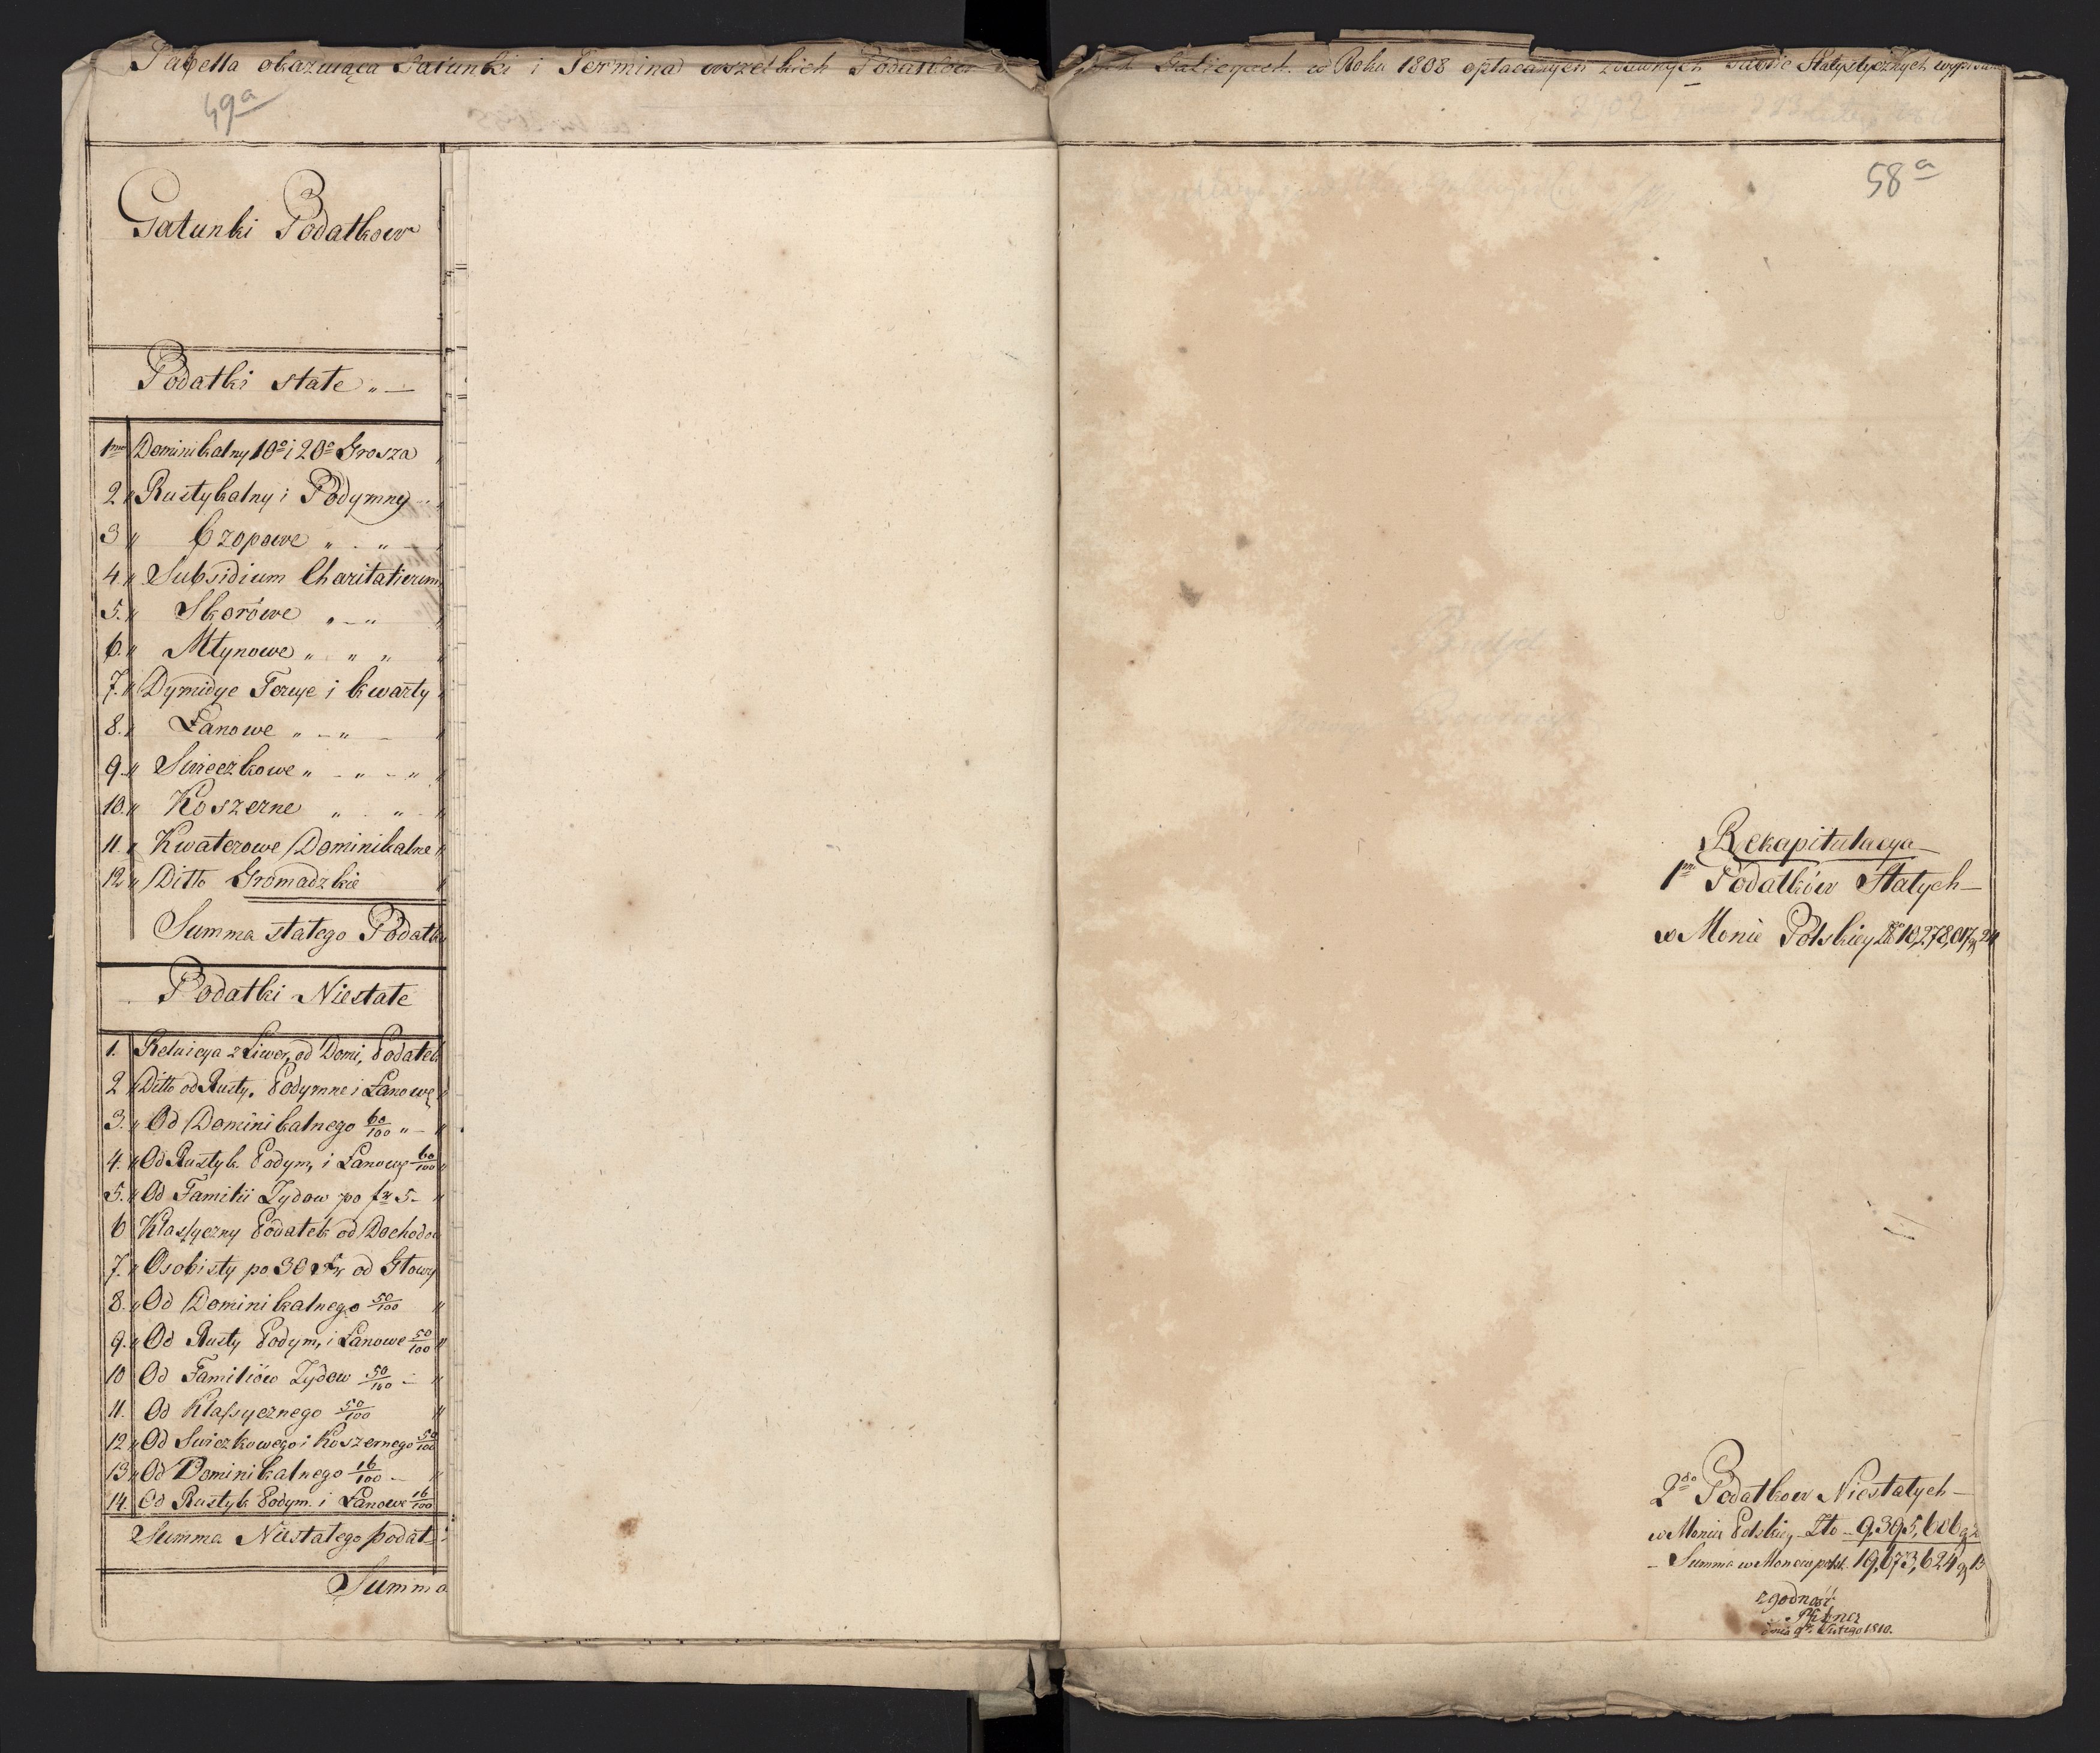 Tabella okazuiąca Gatunki i Termina wszelkich Podatkow
Galicyach w Roku 1808 opłacanych Statystycznych
49a
58a
Gatunki Podatkow
Podatki stałe „ —
1mo Dominikalny 10o i 20o Grosza
2 „ Rustykalny i Podymny
3 „ Czopowe „ „
4 „ Subsidium Charitativum
5. „ Skorówe „ — „
6. „ Młynowe „ „ „
7. „ Dymidye Tercye i kwarty
8. „ Łanowe „ — „ —
9 „ Swieczkowe „ — „ — „
10. „ Koszerne „ „
11. „ Kwaterowe Dominikalne
12 „ Ditto Gromadzkie
Summa stałego Podatk
Podatki Niestałe
1. Reluicya z Liwer, od Domi, Podatek
2 „ Ditto od Rusty. Podymne i Łanowe
3. „ Od Dominikalnego 60/100 „ —
4. „ Od Rustyk. Podym, i Łanowe 60/100
5. „ Od Familii Zydow po fr 5 —
6 Klassyczny Podatek od Dochodo
7. „ Osobisty po 30 Xr od Głowy
8. „ Od Dominikalnego 50/100
9. „ Od Rusty Podym, i Łanowe 50/100
10 Od Familiów Zydow 50/100 —
11. Od Klassycznego 50/100
12 „ Od Swiczkowego i Koszernego 50/100
13 „ Od Dominikalnego 16/100 —
14. Od Rustyk Podym. i Łanowe 16/100
Summa Niestałego podat
Summa
Rekapitulacya
1mo Podatków Stałych —
w Monie Polskiey Zło 10,278,017 g 24
2do Podatkow Niestałych —
w Monie Polskiey Zło — 9,395,606 g
— Summa w Monecie polsk. 19,673,624 g 13
zgodność
dnia 9go Lutego 1810.